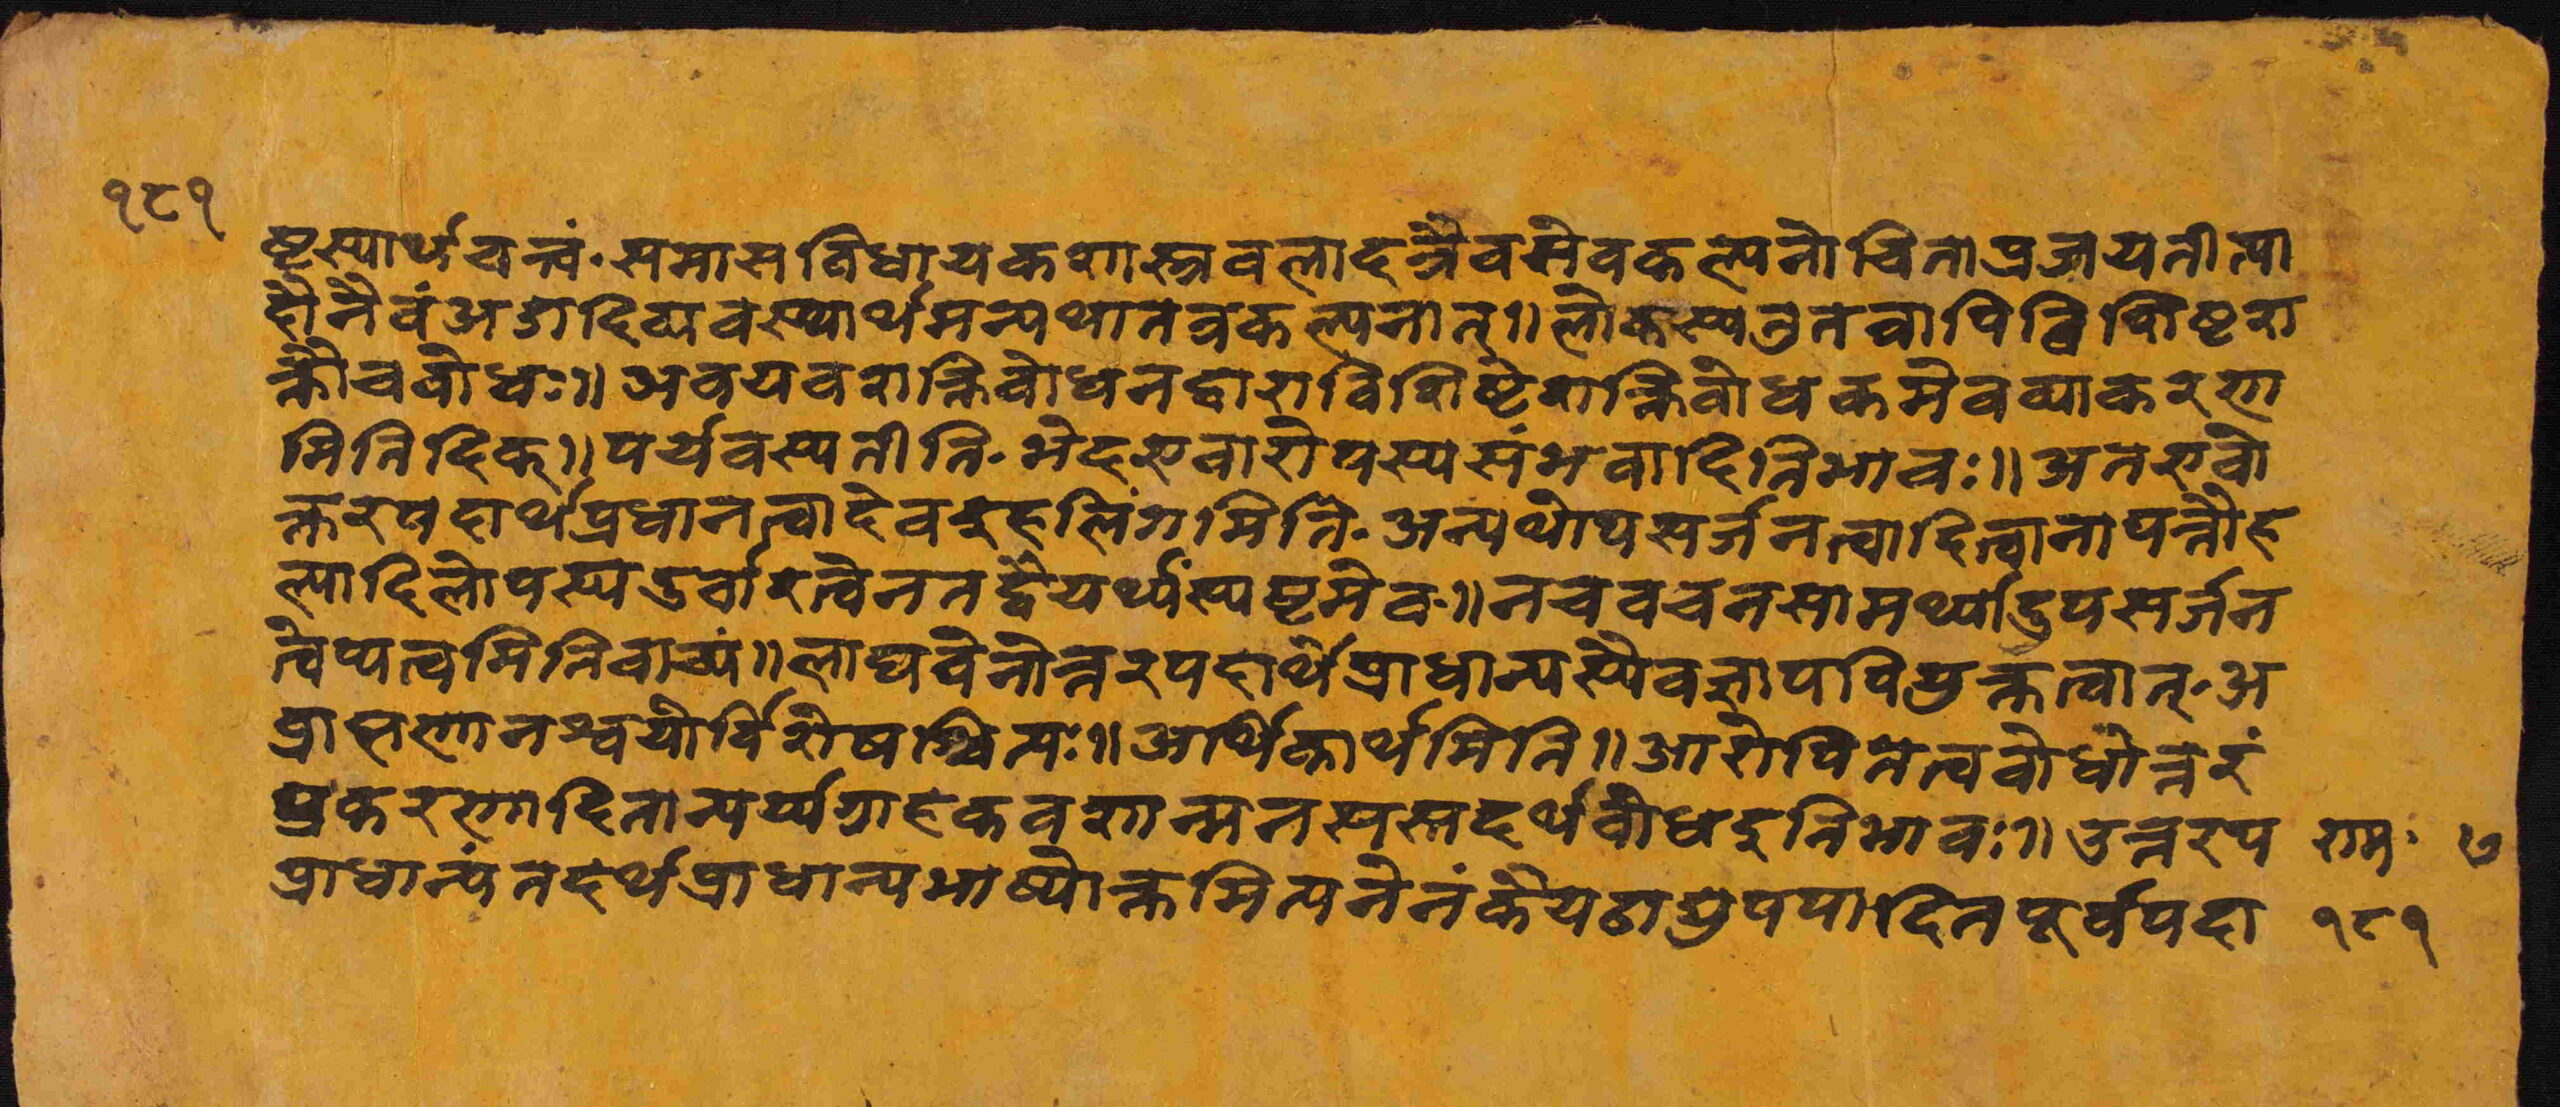 १८१
ष्टस्यार्थवत्त्वं. समासविधायकशास्त्रवलादत्रैवसेवकल्पनोचिताप्रत्राययतीत्या
हौनैवंअङादिव्यवस्थार्थमन्यथातत्रकल्पनात्॥ लोकस्यतुतत्रापिविशिष्टश
क्तौचवोधः॥ अवयवशक्तिवोधनद्वाराविशिष्टेशक्तिवोधकमेवव्याकरण
मितिदिक्॥ पर्यवस्यतीति. भेदएवारोपस्यसंभवादितिभावः॥ अतएवो
त्तरपदार्थप्रधानत्वादेवइहलिंगमिति. अन्यथोपसर्जनत्वादित्वानापत्तौह
ल्यादिलोपस्यदुर्वारत्वेनतद्वैयर्थ्यंस्पष्टमेव॥ नचवचनसामर्थ्यादुपसर्जन
त्वेप्यत्वमितिवाच्यं॥ लाघवेनोत्तरपदार्थप्राधान्यस्यैवज्ञापयितुयुक्तत्वात्. अ
व्राह्मणानश्वयोर्विशेषश्चिंत्यः॥ आर्थिकार्थमिति॥ आरोपितत्ववोधोत्तरं
प्रकरणादितात्पर्यग्राहकवशान्मनस्यस्तदर्थवोधइतिभावः॥ उत्तरप राम. ७
प्राधान्यंतदर्थप्राधान्यभाष्योक्तमित्यनेनंकैयटाद्युपपादितपूर्वपदा १८१